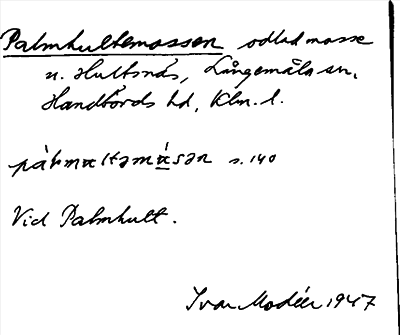 Palmhultemossen odlad mosse
n. Hultsnäs, Långemåla sn,
Handbörds hd, Klm. l.
pàlmɑltəmɑ́sən s. 140
Vid Palmhult.
Ivar Modéer 1947